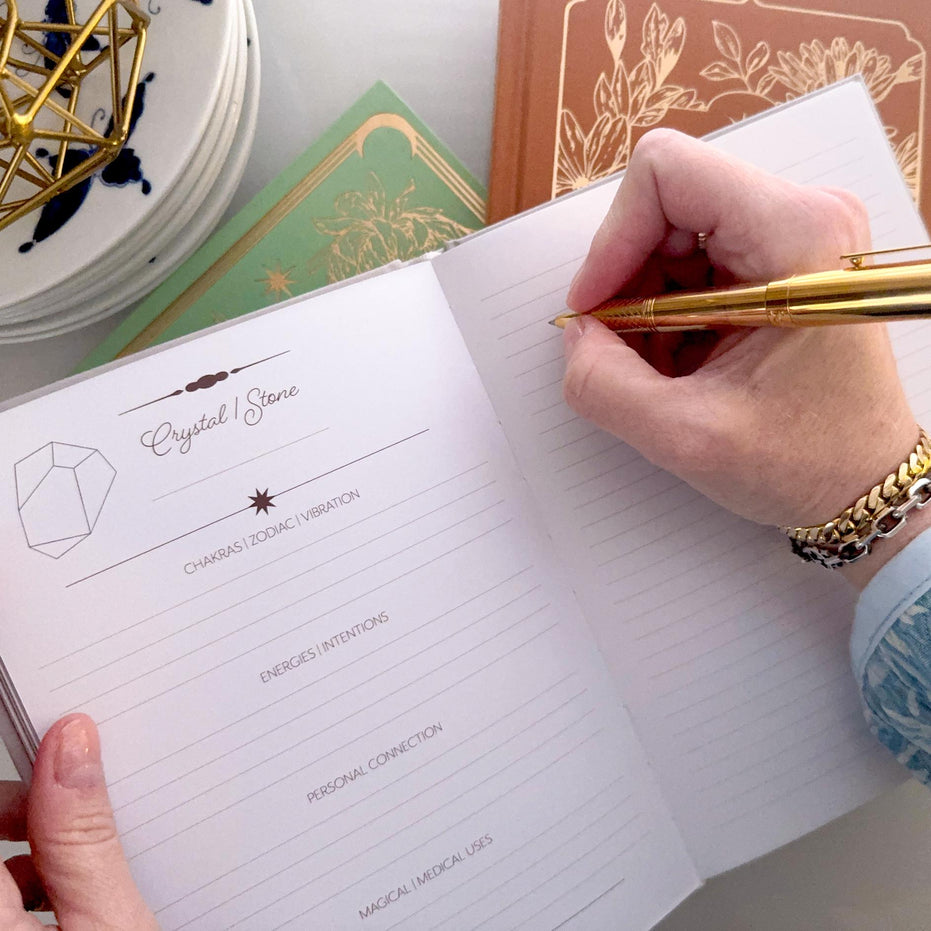 Crystal | Stone
CHAKRAS | ZODIAC | VIBRATION
ENERGIES | INTENTIONS
PERSONAL CONNECTION
MAGICAL | MEDICAL USES